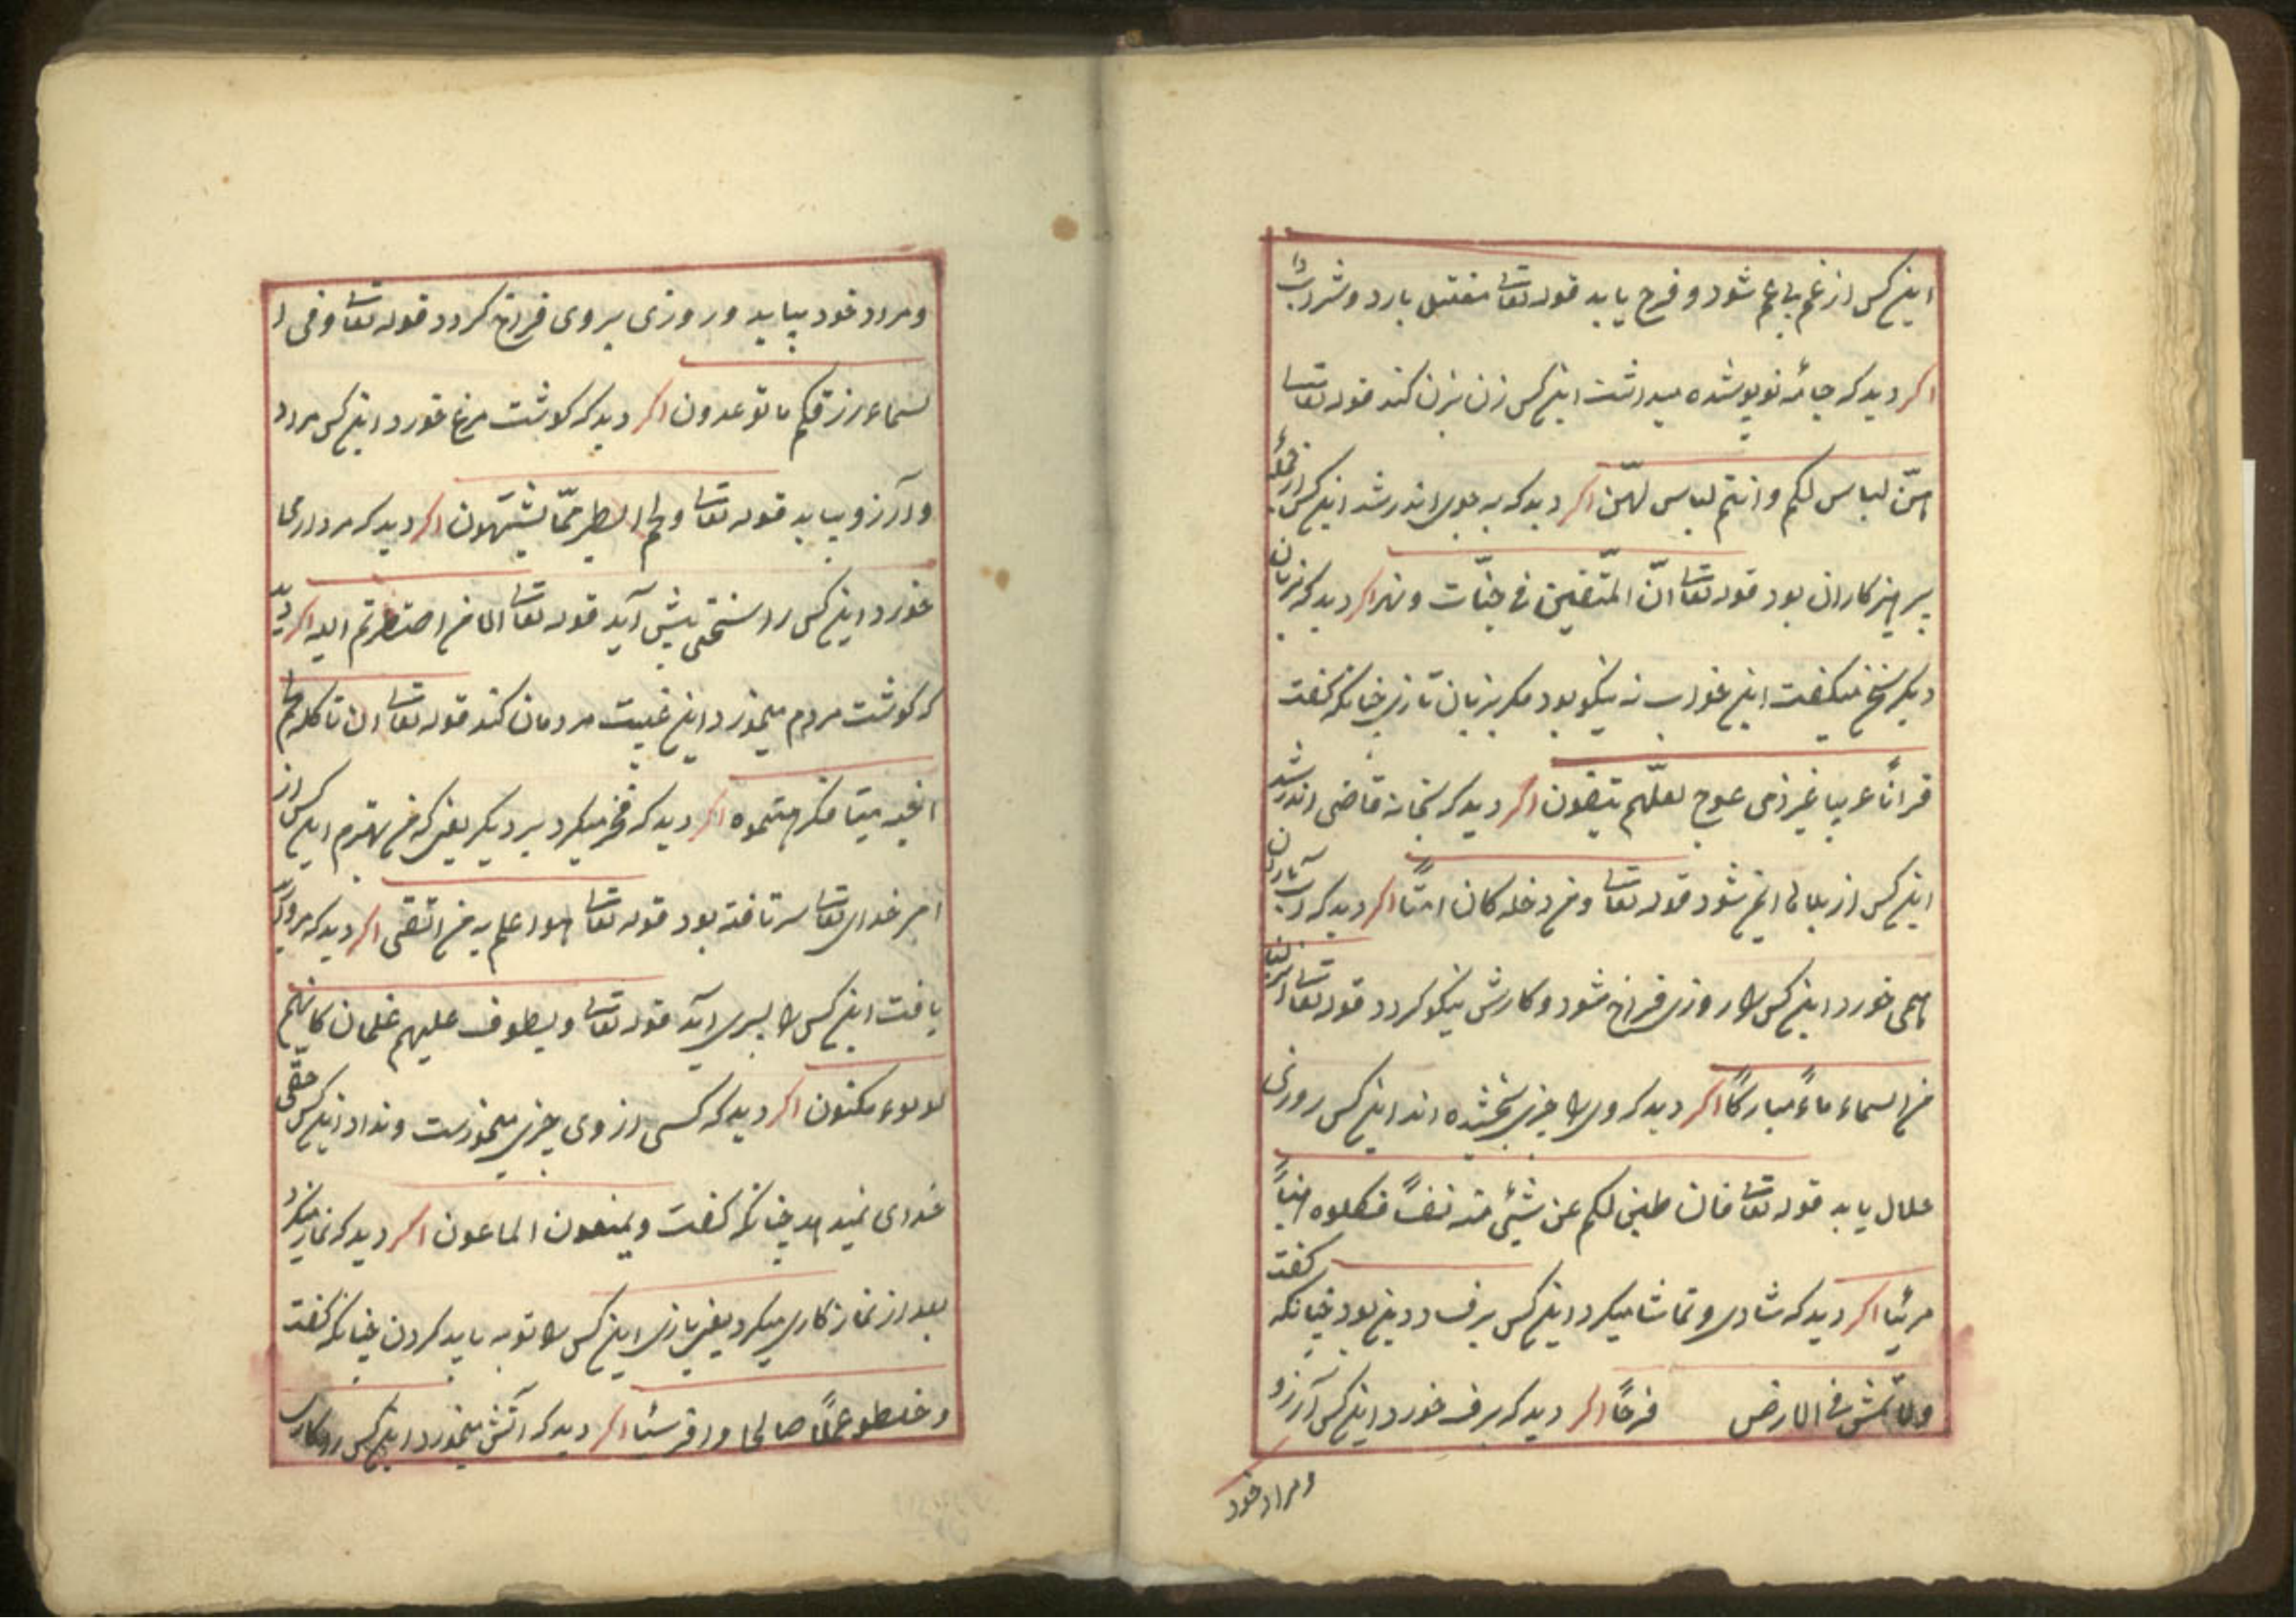 این کس از غم بی غم شود و فرح یابد قوله تعا مغتسل بارد و شراب
اکر دید که جامٔه نو پوشده میداشت این کس زن بزن کند قوله تعا
هنّ لباس لکم و انتم لباس لهنّ اکر دید که به جوی اندر شد این کس از جملهٔ
پرهیزکاران بود قوله تعا انّ المتّقین فی جنّات و نهر اکر دید که بزبان
دیکر سخن میکفت این خواب نه نیکو بود مکر بزبان تازی چنانکه کفت
قراناً عربیا غیر ذی عوج لعلّهم یتقون اکر دید که بخانه قاضی اندر شد
این کس از بلا ها ایمن شود قوله تعا و من دخله کان امنّاً اکر دید که آب باران
همی خورد این کس را روزی فراخ شود و کارش نیکو کردد قوله تعا انزلنا
من السماء ماءً مبارکاً اکر دید که وی را چیزی بخشیده اند این کس روزی
حلال یابد قوله تعا فان طبن لکم عن شئی منه نفساً فکلوه هنیاً
مرئیا اکر دید که شادی و تماشا میکرد این کس برفساد دین بود چنانکه کفت
ولا تمش فی الارض فرحاً اکر دید که برف خورد این کس آرزو
و مراد خود
و مراد خود بیابد و روزی بروی فراخ کردد قوله تعا وفی ا
لسماء رزقکم ما توعدون اکر دید که کوشت مرغ خورد این کس مراد
و آرزو بیابد قوله تعا ولحم الطیر ممّا یشتهون اکر دید که مردار همی
خورد این کس را سختی پیش آید قوله تعا الا من اضطررتم الیه اکر دید
که کوشت مردم میخورد این غیبت مردمان کند قوله تعا ان تاکله لحم
اخیه میتا فکرهتموه اکر دید که فخر میکرد بر دیکر یعنی که من بهترم این کس از
امر خدای تعا سر تافته بود قوله تعا هو اعلم به من اتّقی اکر دید که مروارید
یافت این کس را پسری آید قوله تعا ویطوف علیهم غلمان کانهم
لولوء مکنون اکر دید که کسی از وی چیزی میخواست و نداد این کس حقّی
خدای نمیدهد چنانکه کفت ویمنعون الماعون اکر دید که نماز میکرد
بعد از نماز کاری میکرد یعنی بازی این کس را توبه باید کردن چنانکه کفت
وخلطو عملاً صالحا واخر سئیا اکر دید که آتش میخورد این کس را